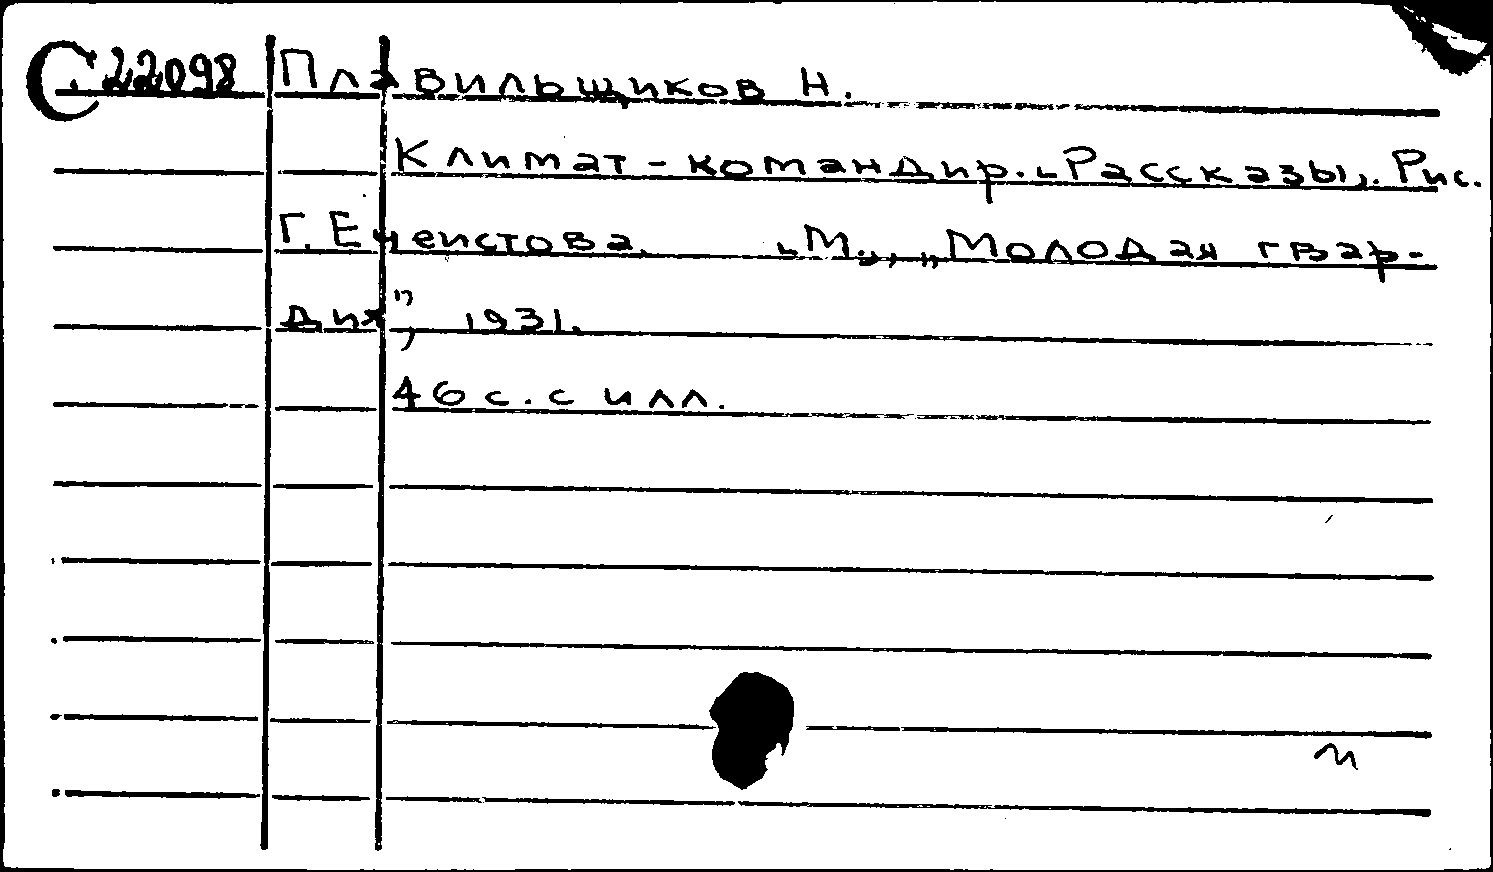 С.22098 Плавильщиков Н.
Климат-командир. [Рассказы]. Рис.
Г. Ечеистова. [М.], „Молодая гвар-
дия", 1931.
46 с. с илл.